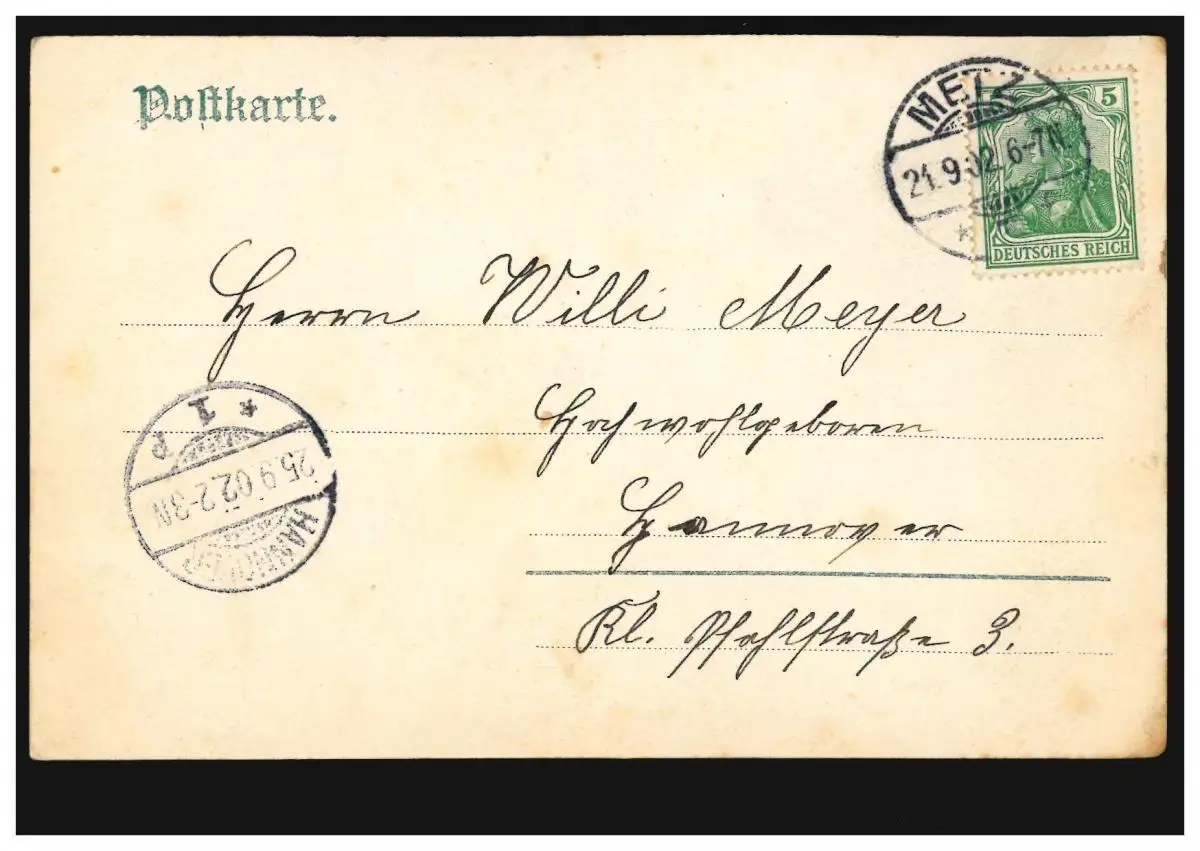 Postkarte.
METZ
21.9.02. 6-7N.
5
DEUTSCHES REICH
Herrn Willi Meyer
Hochwohlgeboren
Hannover
Kl. Pfahlstraße 3.
HANNOVER
25.9.02. 2-3N
* 1 P